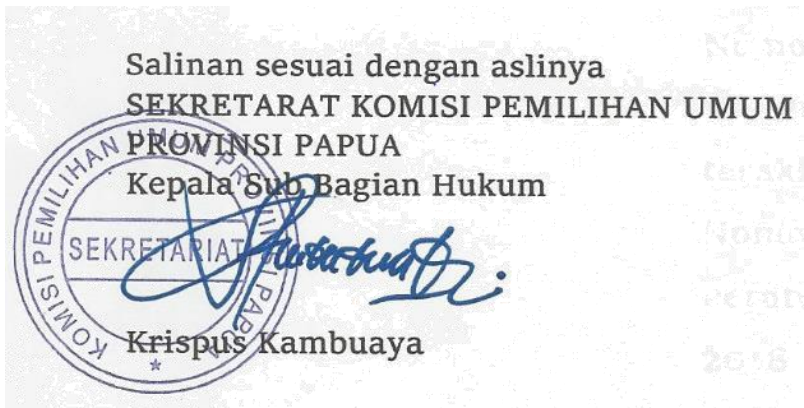 Salinan sesuai dengan aslinya
SEKRETARAT KOMISI PEMILIHAN UMUM
PROVINSI PAPUA
Kepala Sub Bagian Hukum
KOMISI PEMILIHAN UMUM PROVINSI PAPUA
SEKRETARIAT
Krispus Kambuaya
2018